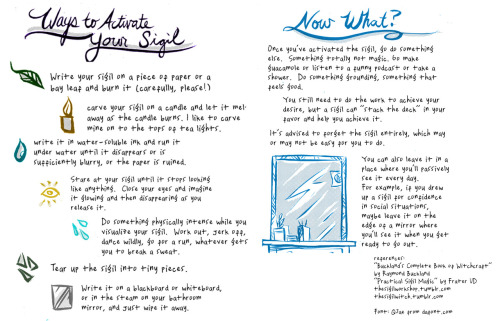 Ways to Activate
Your Sigil
Write your sigil on a piece of paper or a
bay leaf and burn it (carefully, please!)
carve your sigil on a candle and let it melt
away as the candle burns. I like to carve
mine on to the tops of tea lights.
write it in water-soluble ink and run it
under water until it disappears or is
sufficiently blurry, or the paper is ruined.
Stare at your sigil until it stops looking
like anything. Close your eyes and imagine
it glowing and then disappearing as you
release it.
Do something physically intense while you
visualize your sigil. Work out, jerk off,
dance wildly, go for a run, whatever gets
you to break a sweat.
Tear up the sigil into tiny pieces.
Write it on a blackboard or whiteboard,
or in the steam on your bathroom
mirror, and just wipe it away.
Now What?
Once you've activated the sigil, go do something
else. Something totally not magic. Go make
guacamole or listen to a funny podcast or take a
shower. Do something grounding, something that
feels good.
You still need to do the work to achieve your
desire, but a sigil can "stack the deck" in your
favor and help you achieve it.
It's advised to forget the sigil entirely, which may
or may not be easy for you to do.
You can also leave it in a
place where you'll passively
see it every day.
For example, if you drew
up a sigil for confidence
in social situations,
maybe leave it on the
edge of a mirror where
you'll see it when you get
ready to go out.
references:
"Buckland's Complete Book of Witchcraft"
by Raymond Buckland
"Practical Sigil Magic" by Frater UD
thesigilworkshop.tumblr.com
thesigilwitch.tumblr.com
Font: QJae from dafont.com